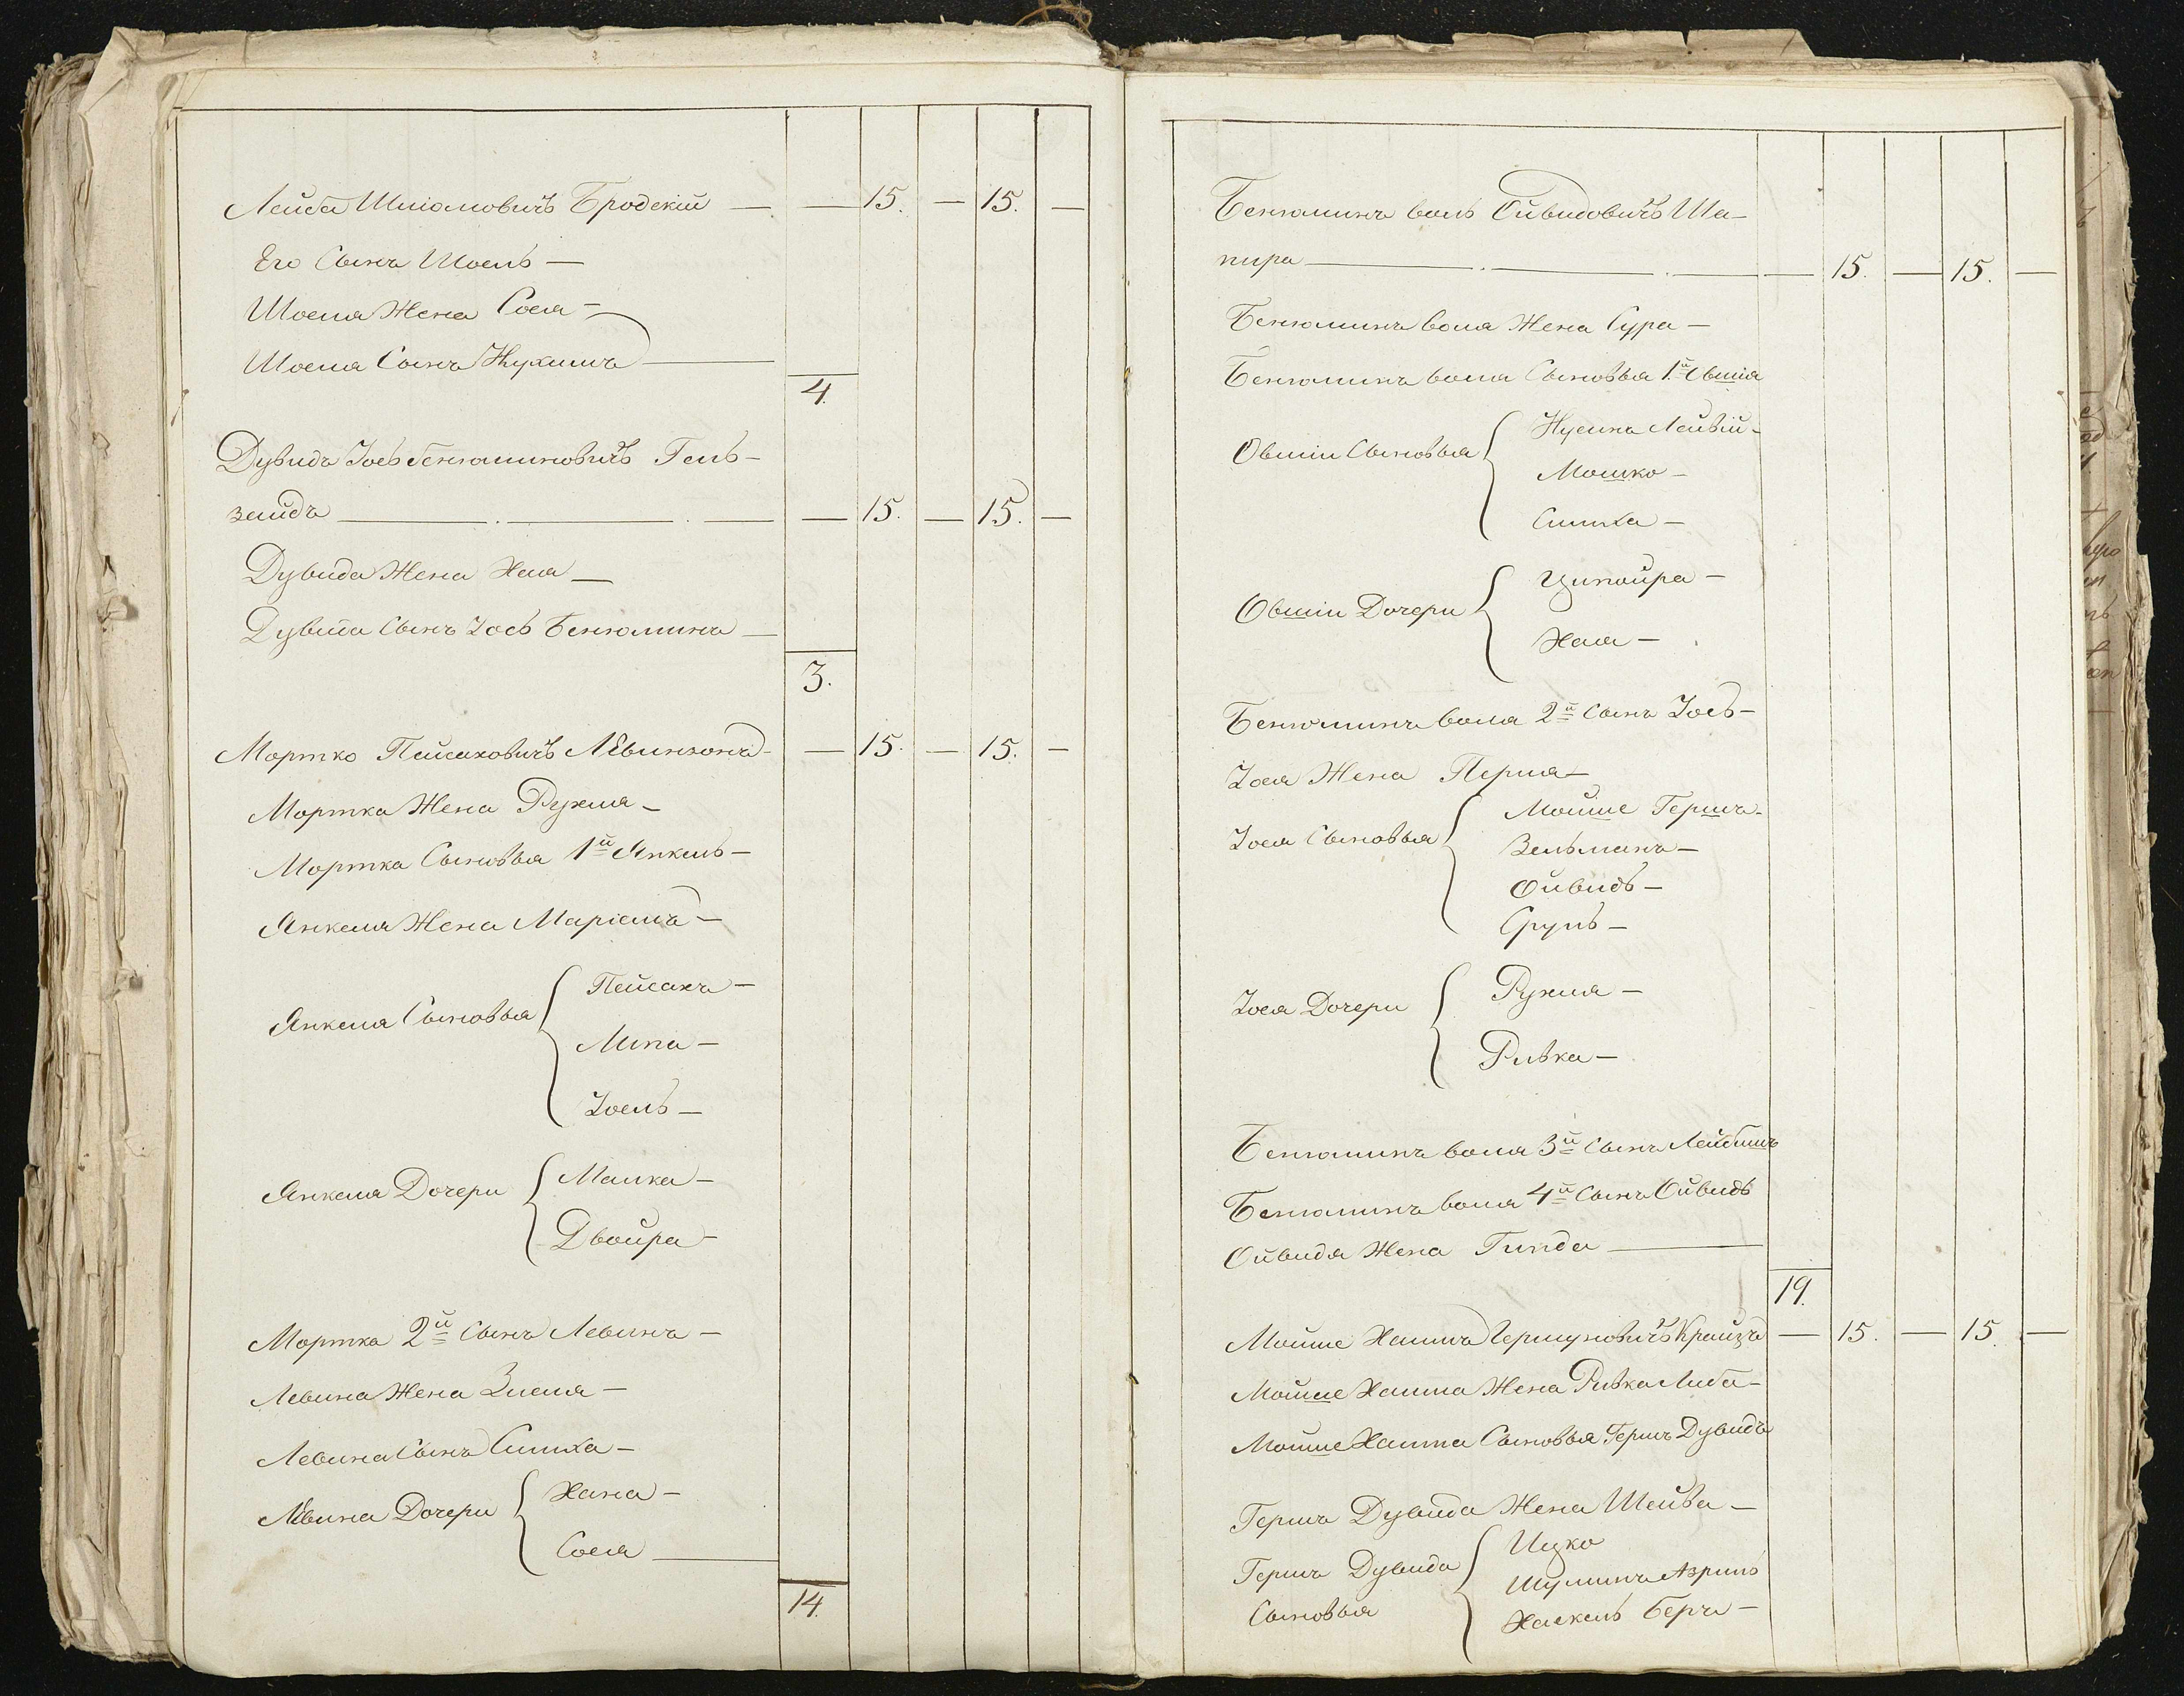 Лейба Шліомовичъ Бродскій — — 15. — 15. —
Его Сынъ Шоель —
Шоеля Жена Сося —
Шоеля Сынъ Нухимъ —
4.
Дувидъ Іось Бенюминовичъ Гель-
зендъ — — 15. — 15. —
Дувида Жена Хая —
Дувида Сынъ Іось Бенюминъ —
3.
Мортко Пейсаховичъ Лѣвинзонъ — — 15. — 15. —
Мортка Жена Рухля —
Мортка Сыновья 1й Янкель —
Янкеля Жена Маріемъ —
Янкеля Сыновья
Пейсахъ —
Липа —
Іоель —
Янкеля Дочери
Малка —
Двойра —
Мортка 2й Сынъ Левинъ —
Левина Жена Злеля —
Левина Сынъ Симха —
Лѣвина Дочери
Хана —
Сося —
14.
Бенюминъ волъ Ойвидовичъ Ша-
пира — — 15. — 15. —
Бенюминъ воля Жена Сура —
Бенюминъ воля Сыновья 1й Овшія
Овшіи Сыновья
Нусинъ Лейвій —
Мошко —
Симха —
Овшіи Дочери
Ципойра —
Хая —
Бенюминъ воля 2й Сынъ Іось —
Іося Жена Перля —
Іося Сыновья
Мойше Гершъ —
Зельманъ —
Ойвидь —
Сруль —
Іося Дочери
Рухля —
Ривка —
Бенюминъ воля 3й Сынъ Лейбишъ
Бенюминъ воля 4й Сынъ Ойвидь
Ойвидя Жена Гинда —
19.
Мойше Хаимъ Гершуновичъ Крайзъ — 15. — 15. —
Мойше Хаима Жена Ривка Либа —
Мойше Хаима Сыновья Гершъ Дувидъ
Гершъ Дувида Жена Шейва —
Гершъ Дувида
Сыновья
Ицко
Шулимъ Азриль
Хаскель Беръ —